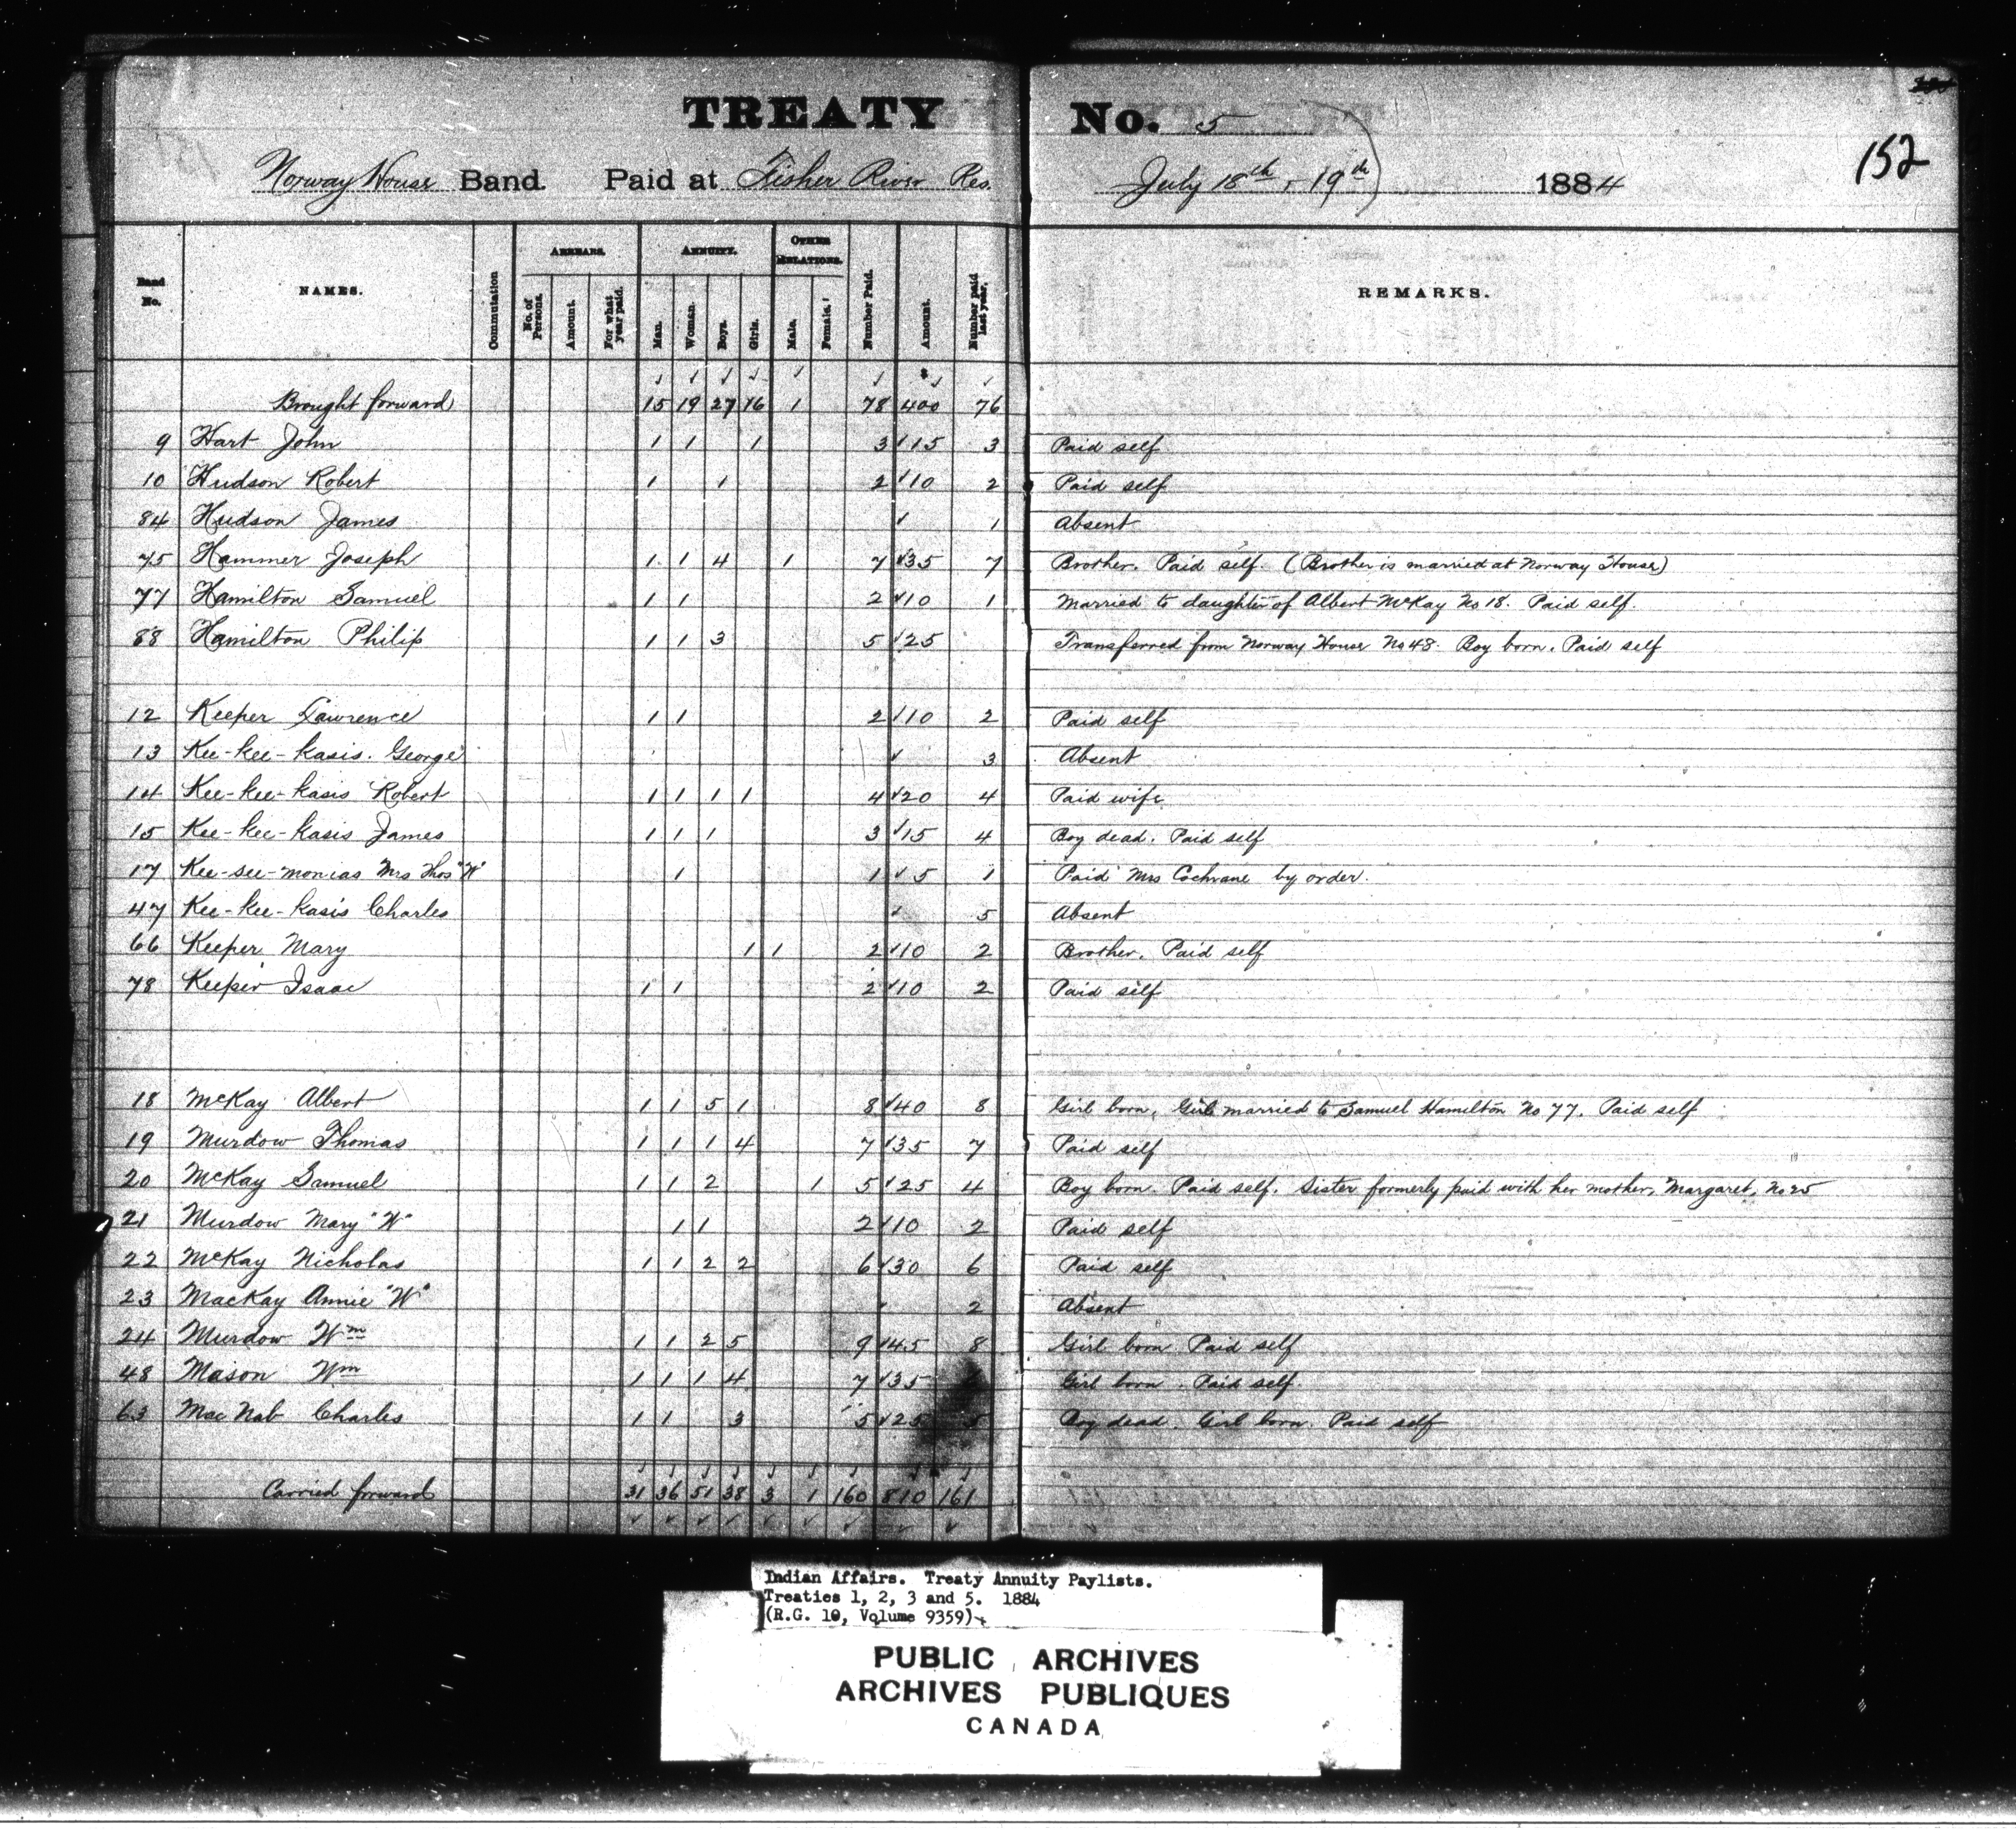 TREATY No. 5
152
Norway House Band. Paid at Fisher River Res. July 18th, 19th 1884
Band No. NAMES. Commutation ARREARS. No. of Persons. Amount. For what year paid. ANNUITY. Man. Woman. Boys. Girls. OTHER RELATIONS. Male. Female. Number Paid. Amount. Number paid last year. REMARKS.
Brought forward 15 19 27 16 1 78 400 76
9 Hart John 1 1 1 3 15 3 Paid self.
10 Hudson Robert 1 1 2 10 2 Paid self
84 Hudson James 1 Absent
75 Hammer Joseph 1 1 4 1 7 35 7 Brother. Paid self. (Brother is married at Norway House)
77 Hamilton Samuel 1 1 2 10 1 Married to daughter of Albert McKay No 18. Paid self.
88 Hamilton Philip 1 1 3 5 25 Transferred from Norway House No 48. Boy born. Paid self
12 Keeper Lawrence 1 1 2 10 2 Paid self
13 Kee-kee-kasis. George 3 Absent
14 Kee-kee-kasis Robert 1 1 1 1 4 20 4 Paid wife
15 Kee-kee-kasis James 1 1 1 3 15 4 Boy dead. Paid self
17 Kee-see-monias Mrs Thos "W" 1 1 5 1 Paid Mrs Cochrane by order.
47 Kee-kee-kasis Charles 5 Absent
66 Keeper Mary 1 1 2 10 2 Brother. Paid self
78 Keeper Isaac 1 1 2 10 2 Paid self
18 McKay Albert 1 1 5 1 8 40 8 Girl born. Girl married to Samuel Hamilton No 77. Paid self
19 Murdow Thomas 1 1 1 4 7 35 7 Paid self
20 McKay Samuel 1 1 2 1 5 25 4 Boy born. Paid self. Sister formerly paid with her mother, Margaret, No 25
21 Murdow Mary "W" 1 1 2 10 2 Paid self
22 McKay Nicholas 1 1 2 2 6 30 6 Paid self
23 MacKay Annie "W" 2 Absent
24 Murdow Wm 1 1 2 5 9 45 8 Girl born Paid self
48 Mason Wm 1 1 1 4 7 35 Girl born. Paid self.
63 MacNab Charles 1 1 3 5 25 5 Boy dead. Girl born. Paid self
Carried forward 31 36 51 38 3 1 160 810 161
Indian Affairs. Treaty Annuity Paylists.
Treaties 1, 2, 3 and 5. 1884
(R.G. 10, Volume 9359)
PUBLIC ARCHIVES
ARCHIVES PUBLIQUES
CANADA